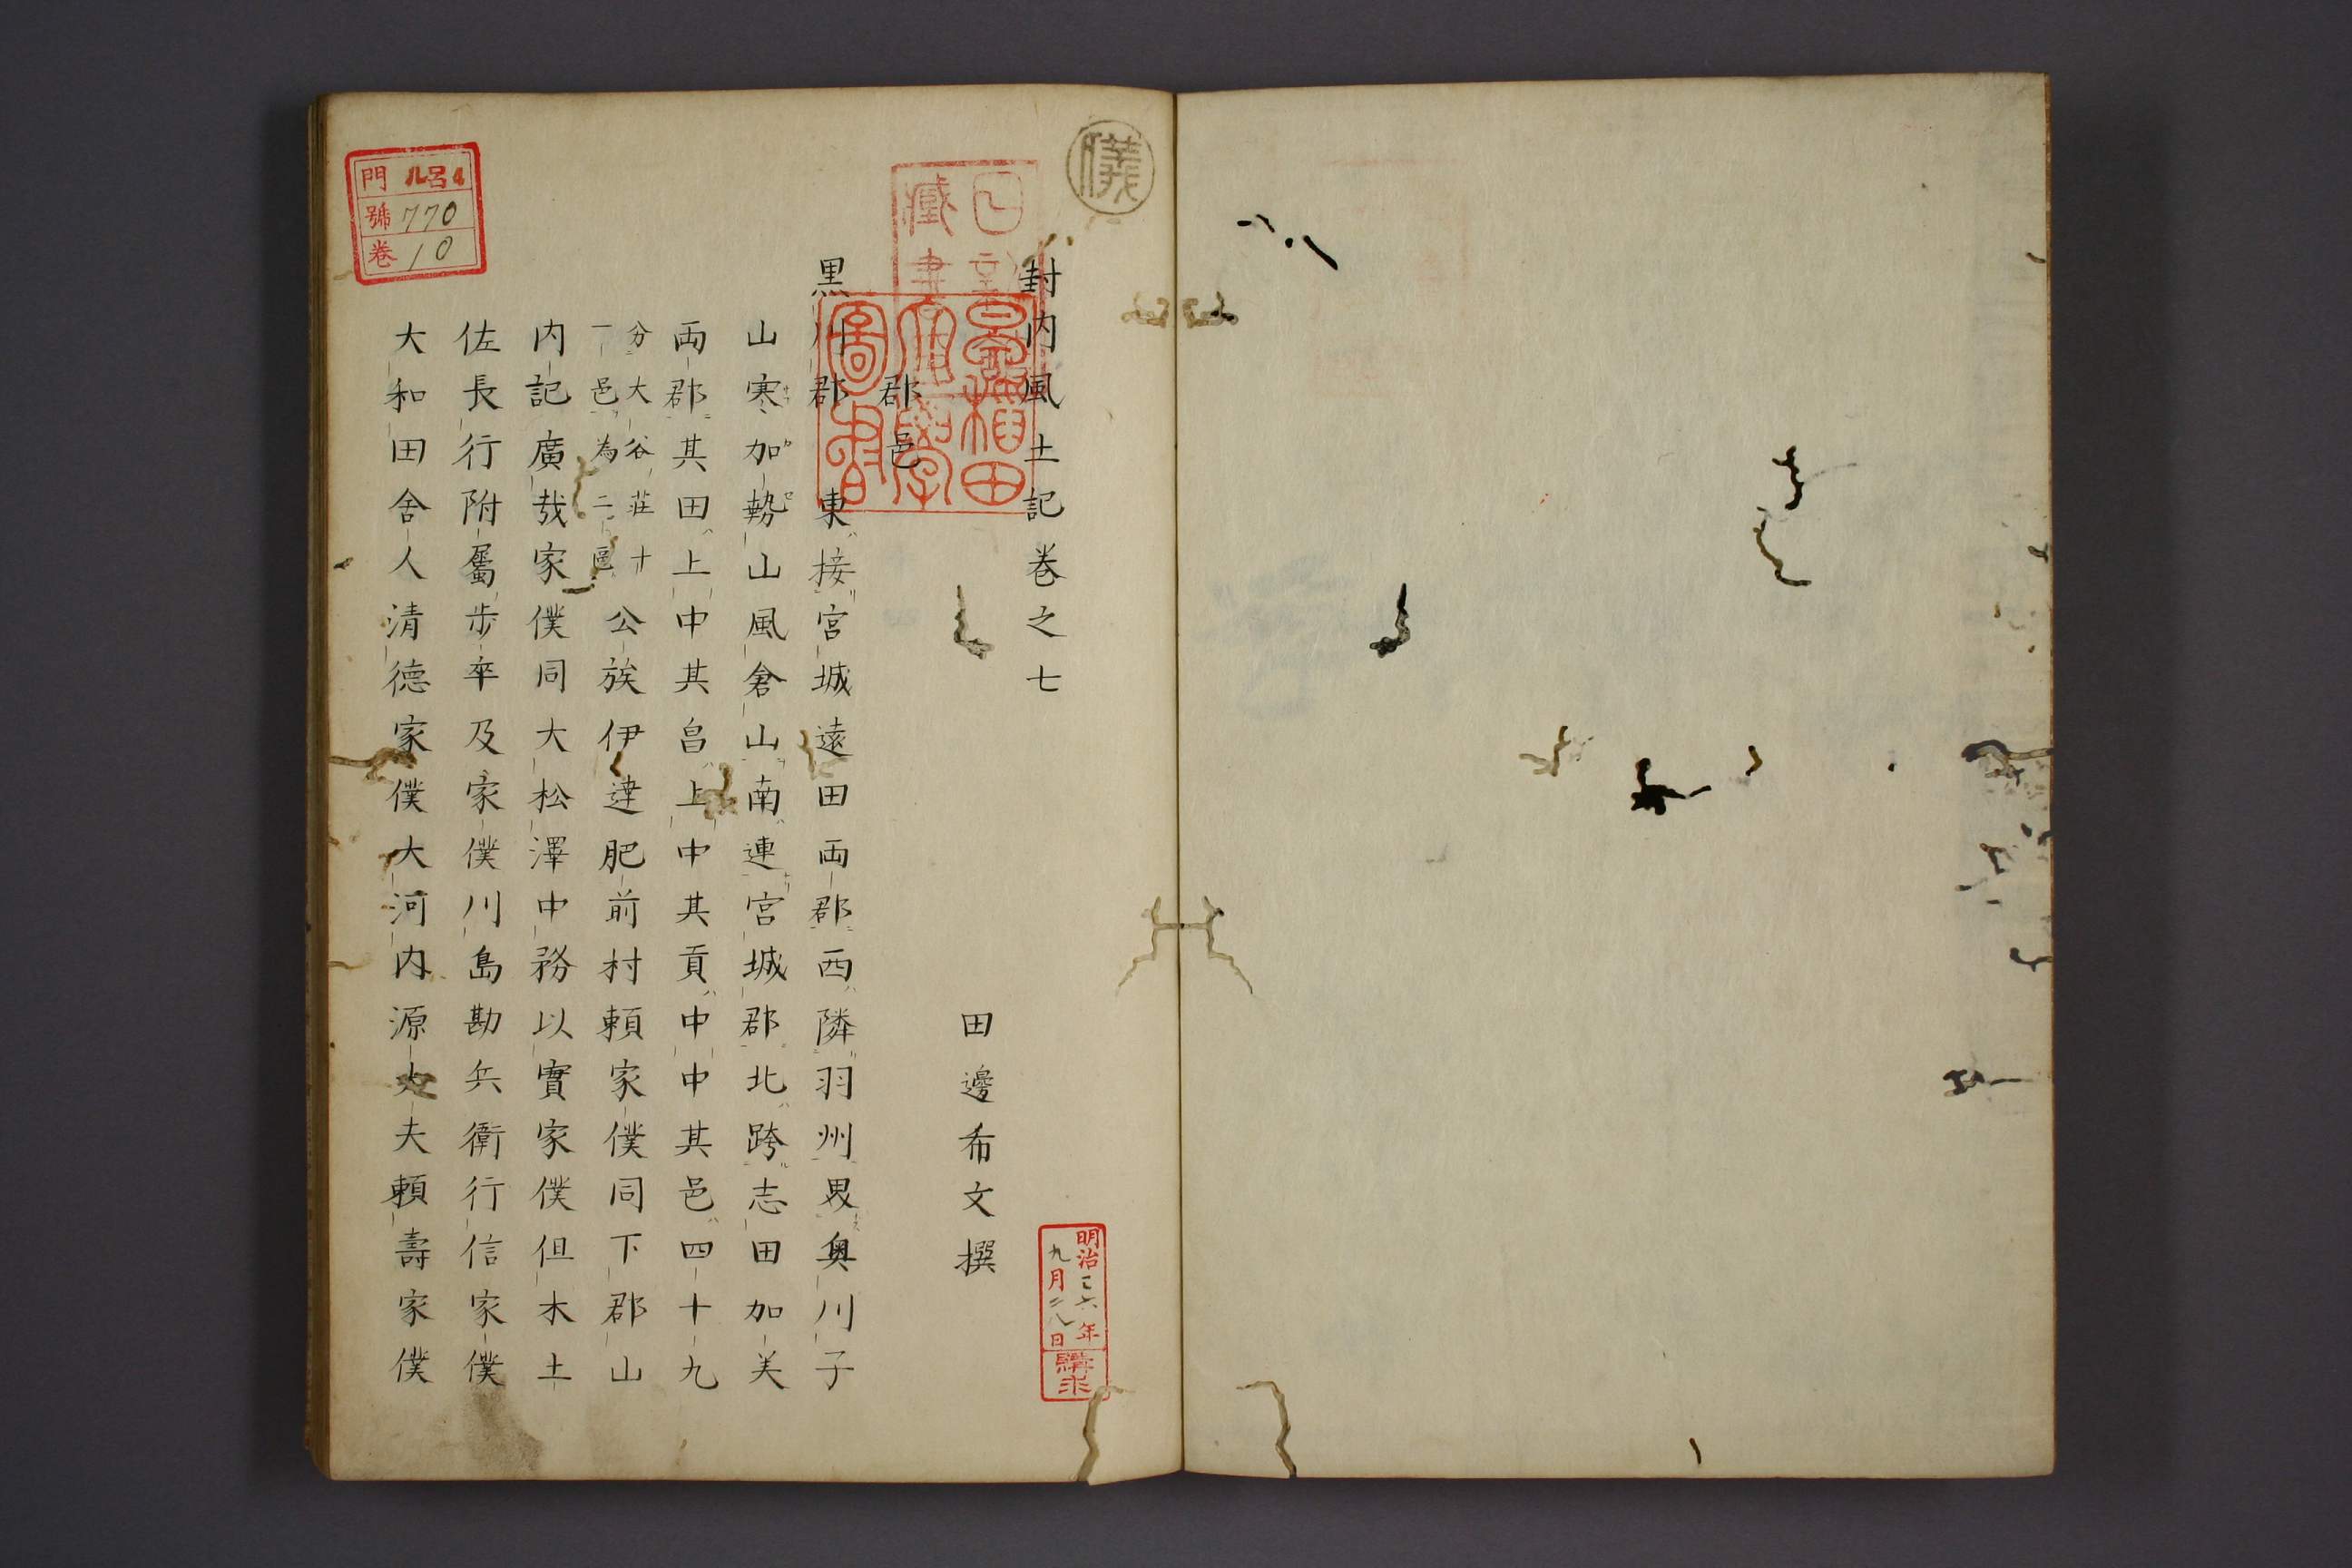 封内風土記巻之七
田邊希文撰
郡邑
黒川郡 東接宮城遠田両郡西隣羽州畍奥川子
山寒加勢山風倉山南連宮城郡北跨志田加美
両郡其田上中其畠上中其貢中中其邑四十九
分大谷荘十
一邑為二區
公族伊達肥前村頼家僕同下郡山
内記廣哉家僕同大松澤中務以實家僕但木土
佐長行附屬歩卒及家僕川島勘兵衛行信家僕
大和田舎人清徳家僕大河内源太夫頼壽家僕
門 ル呂4
號 770
巻 10
早稲田
大學
圖書
藏書
明治三六年
九月二八日
購求